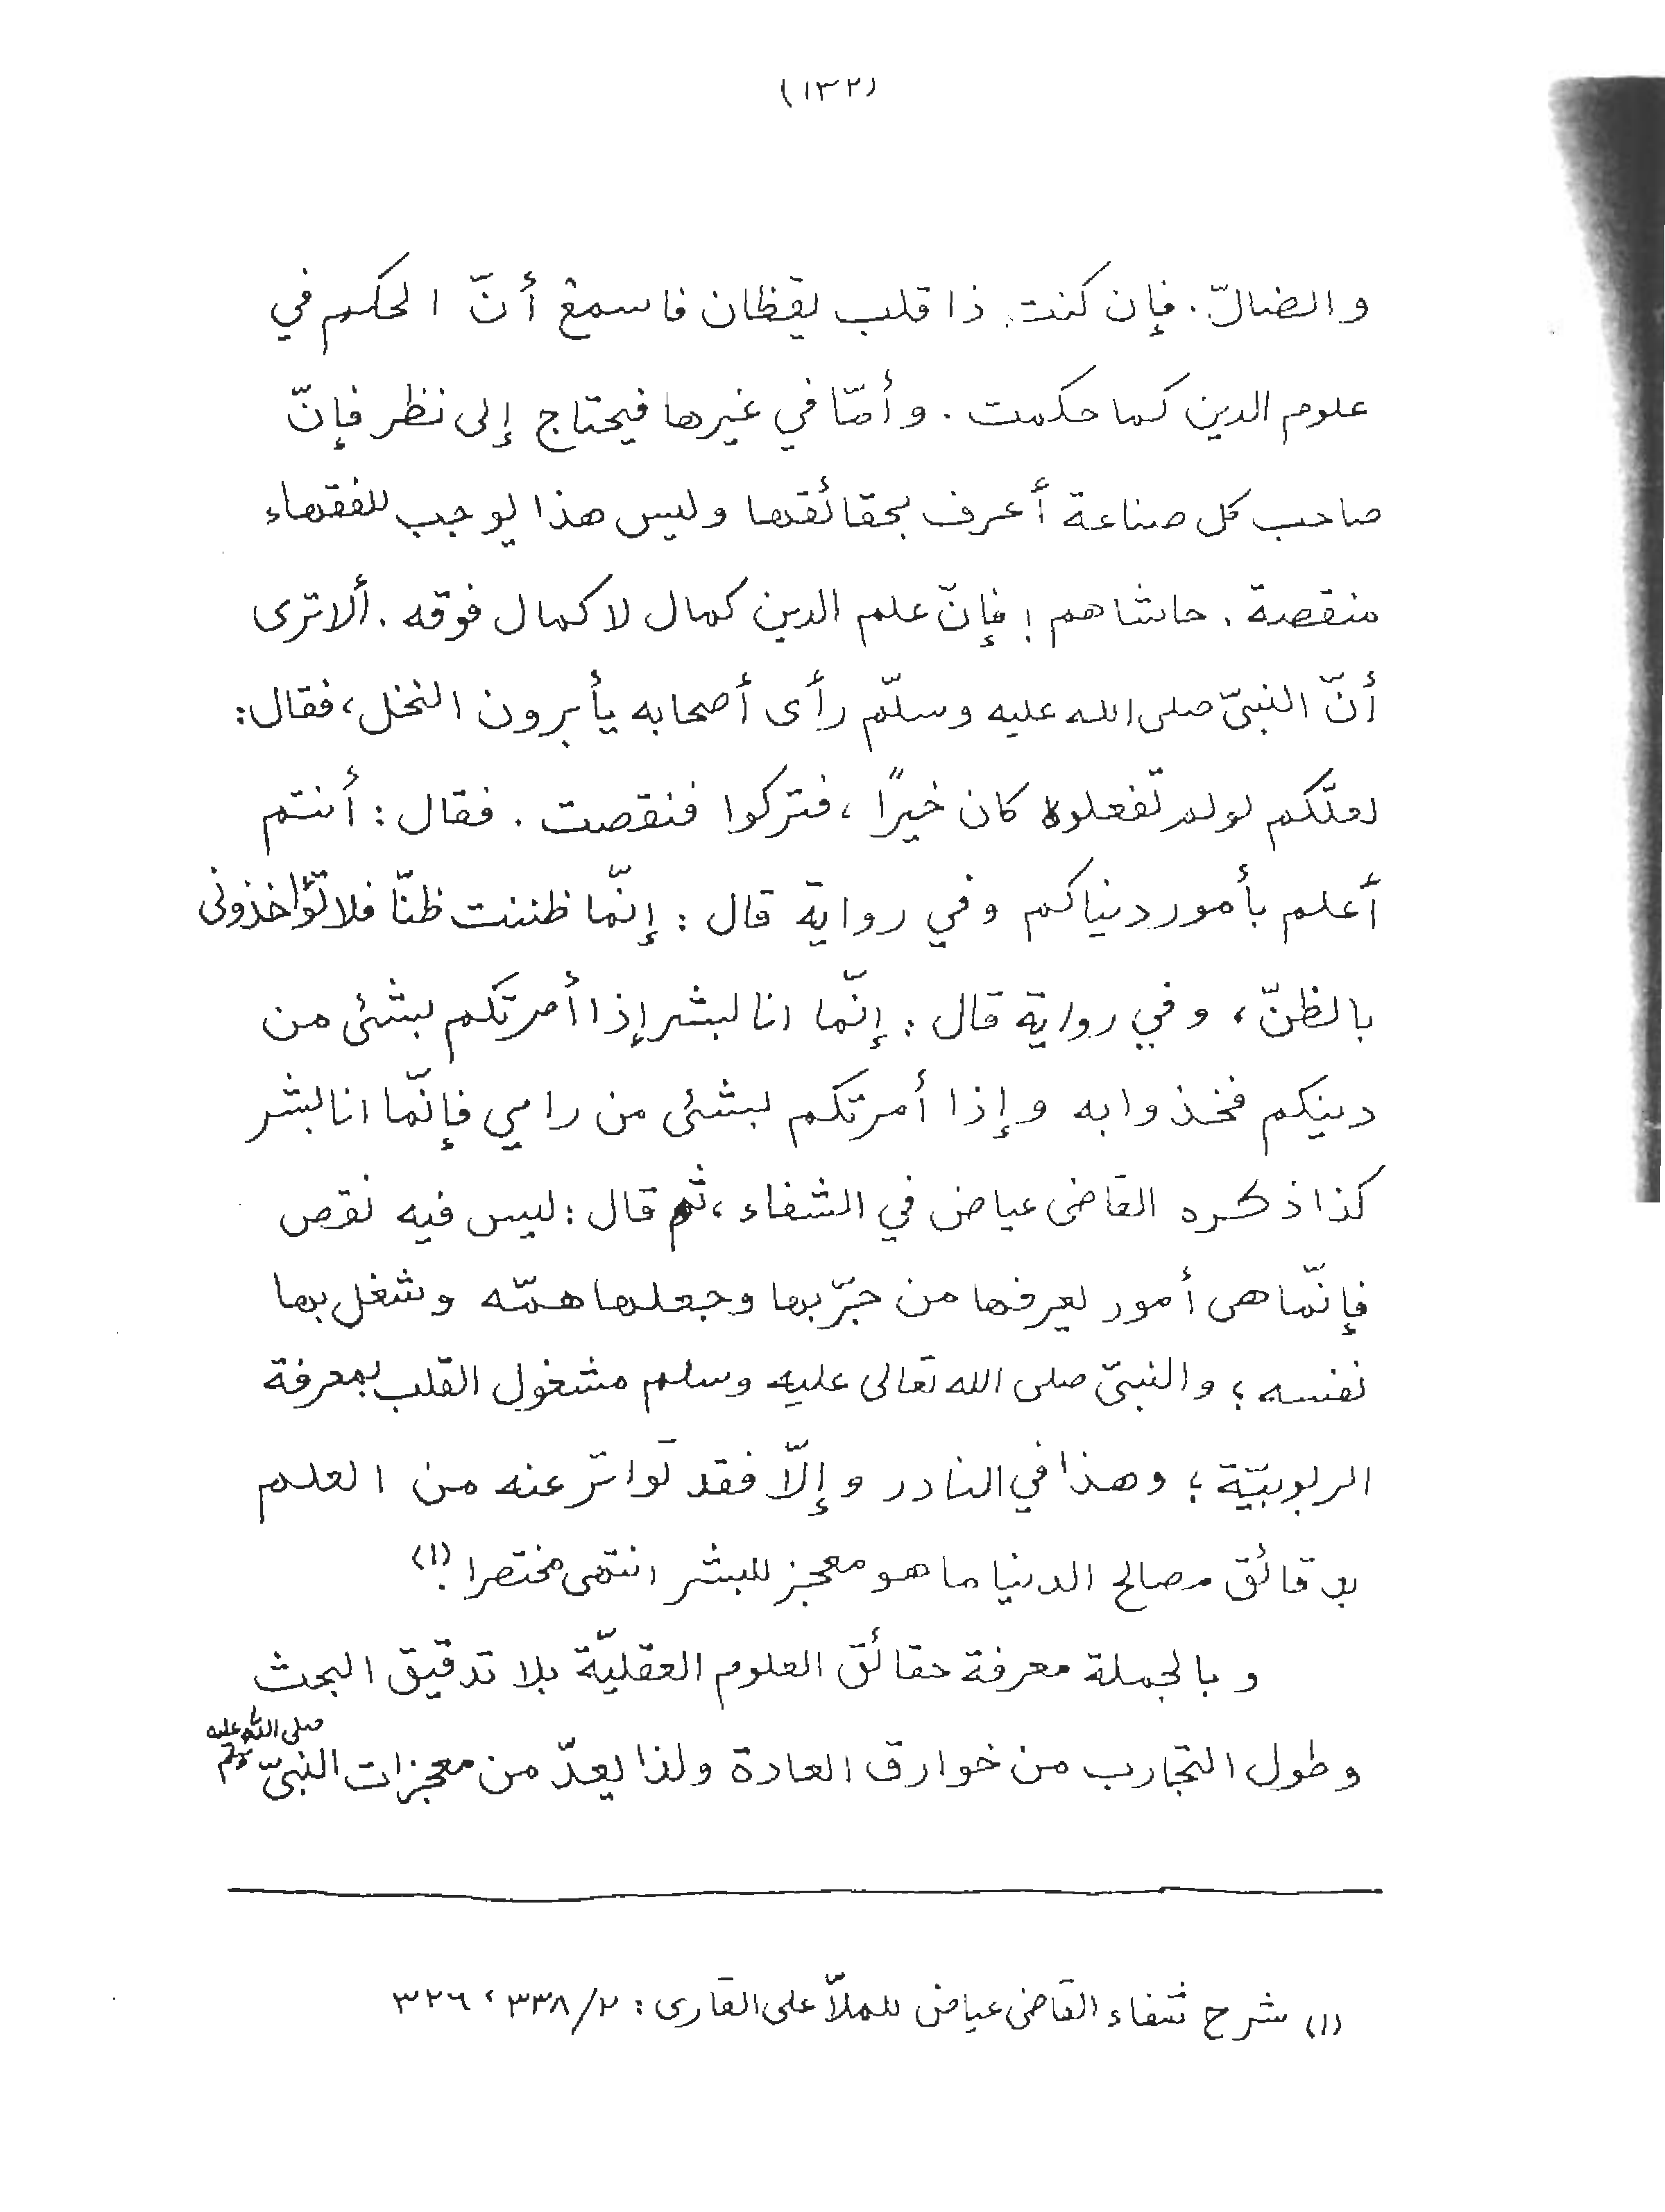 (١٣٢)
والضالّ. فإن كنت ذا قلب يقظان فاسمع أنّ الحكم في
علوم الدين كما حكمت . وأمّا في غيرها فيحتاج إلى نظر فإنّ
صاحب كل صناعة أعرف بحقائقها وليس هذا يوجب للفقهاء
منقصة . حاشاهم ؛ فإنّ علم الدين كمال لا كمال فوقه . ألا ترى
أنّ النبيّ صلى الله عليه وسلّم رأى أصحابه يأبرون النخل، فقال:
لعلّكم لو لم تفعلوه كان خيرًا ، فتركوا فنقصت . فقال : أنتم
أعلم بأمور دنياكم وفي رواية قال : إنّما ظننت ظنّا فلا تؤاخذونى
بالظنّ ، وفي رواية قال : إنّما انا بشر إذا أمرتكم بشئى من
دينكم فخذوا به وإذا أمرتكم بشئى من رامي فإنّما انا بشر
كذا ذكره القاضى عياض في الشفاء ، ثم قال : ليس فيه نقص
فإنّما هى أمور يعرفها من جرّبها وجعلها همّه وشغل بها
نفسه ؛ والنبيّ صلى الله تعالى عليه وسلم مشغول القلب بمعرفة
الربوبيّة ؛ وهذا في النادر وإلّا فقد تواتر عنه من العلم
بدقائق مصالح الدنيا ما هو معجز للبشر انتهى مختصرا . (١)
وبالجملة معرفة حقائق العلوم العقليّة بلا تدقيق البحث
وطول التجارب من خوارق العادة ولذا يعدّ من معجزات النبيّ صلى الله عليه وسلم
(١) شرح شفاء القاضى عياض للملاّ على القارى : ٢/ ٣٣٨ ، ٣٢٦